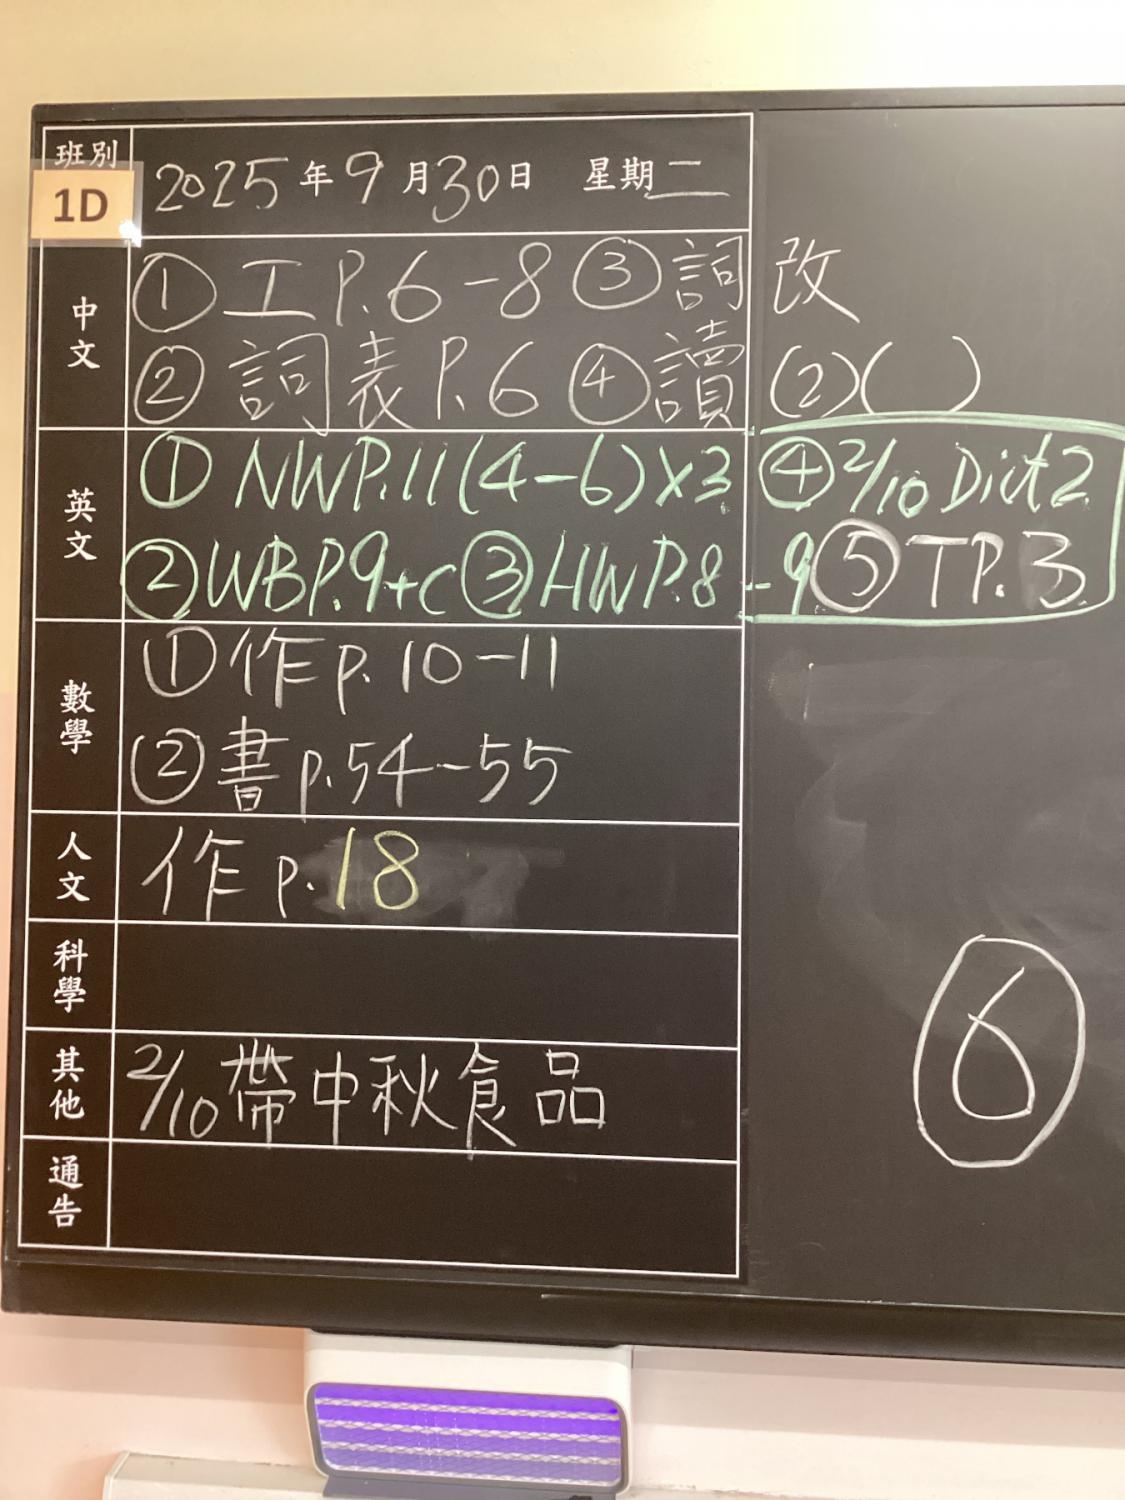 班別
1D
2025年9月30日 星期二
中文
① 工 P.6-8 ③ 詞改
② 詞表 P.6 ④ 讀(2)( )
英文
① NWP.11(4-6)×3 ④ 2/10 Dict2
② WBP.9+C ③ HWP.8-9 ⑤ TP.3
數學
① 作 p.10-11
② 書 p.54-55
人文
作 p.18
科學
其他
2/10 帶中秋食品
通告
6